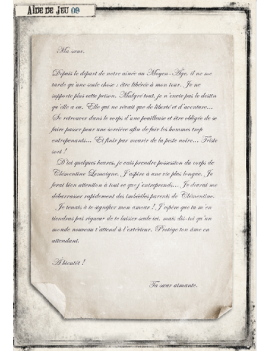 Aide de Jeu 09
Ma sœur,
Depuis le départ de notre aimée au Moyen-Age, il ne me
tarde qu'une seule chose : être libérée à mon tour. Je ne
supporte plus cette prison. Malgré tout, je n'envie pas le destin
qu'elle a eu. Elle qui ne rêvait que de liberté et d'aventure...
Se retrouver dans le corps d'une pouilleuse et être obligée de se
faire passer pour une sorcière afin de fuir les hommes trop
entreprenants... Et finir par mourir de la peste noire... Triste
sort !
D'ici quelques heures, je vais prendre possession du corps de
Clémentine J'espère à une vie plus longue. Je
ferai bien attention à tout ce que j'entreprends... Je devrai me
débarrasser rapidement des imbéciles parents de Clémentine.
Je tenais à te signifier mon amour ! J'espère que tu ne me
tiendras pas rigueur de te laisser seule ici, mais dis-toi qu'un
monde nouveau t'attend à l'extérieur. Protège ton âme en
attendant.
A bientôt !
Ta sœur aimante.